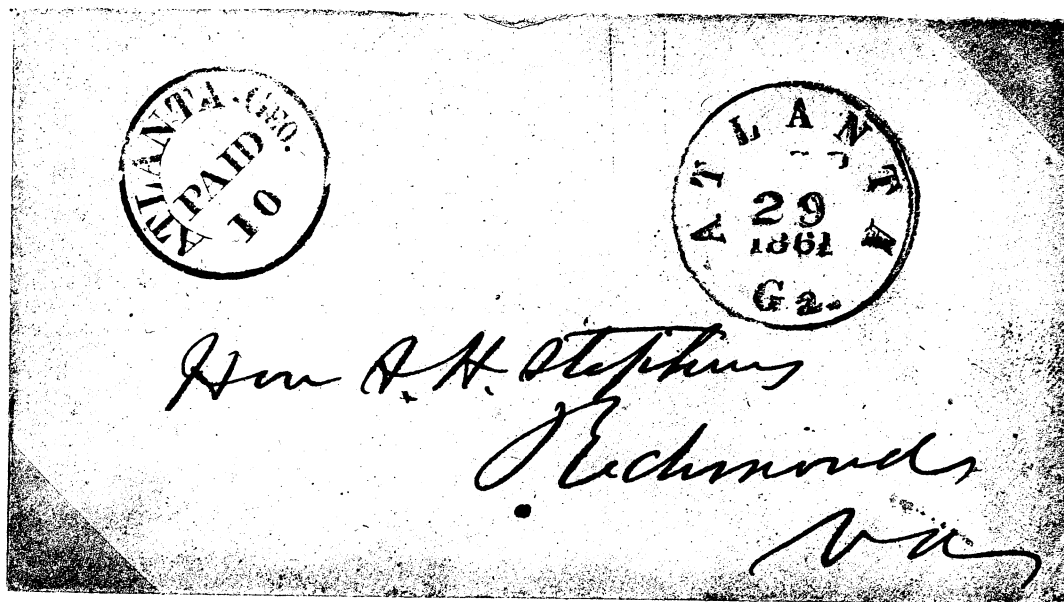 ATLANTA. GEO.
PAID
10
ATLANTA
29
1861
Ga.
Hon A. H. Stephens
Richmond
Va